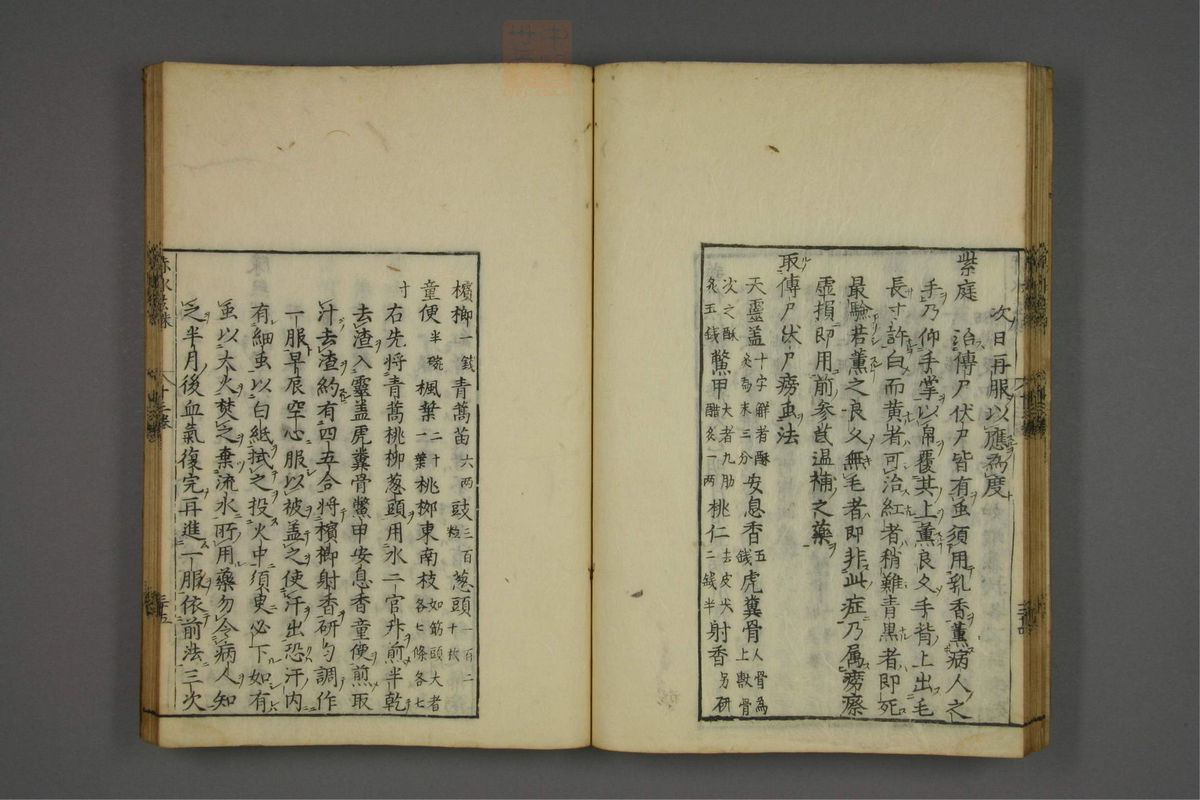 次日再服以應為度
紫庭治傳尸伏尸皆有虫須用乳香薰病人之
手乃仰手掌以帛覆其上薰良久手背上出毛
長寸許白而黄者可治紅者稍難青黒者即死
最驗若薰之良久無毛者即非此症乃属癆瘵
虚損即用前参芪温補之藥
取傳尸伏尸癆虫法
天靈盖十字解者酥炙為末三分安息香五錢虎糞骨人骨為上獸骨
次之酥炙五錢鱉甲大者九肋醋炙一两桃仁去皮尖二錢半射香另研
檳榔一錢青蒿苗六两豉三百粒葱頭一百二十枚
童便半碗楓葉二十一葉桃桞東南枝如筋頭大者各七條各七
寸
右先将青蒿桃柳葱頭用水二官升煎半乾
去渣入靈盖虎糞骨鱉甲安息香童便煎取
汁去渣約有四五合将檳榔射香研匀調作
一服早辰空心服以被盖之使汗出恐汗内
有細虫以白紙拭之投火中須臾必下如有
虫以大火焚之棄流水所用藥勿令病人知
之半月後血氣復完再進一服依前法三次